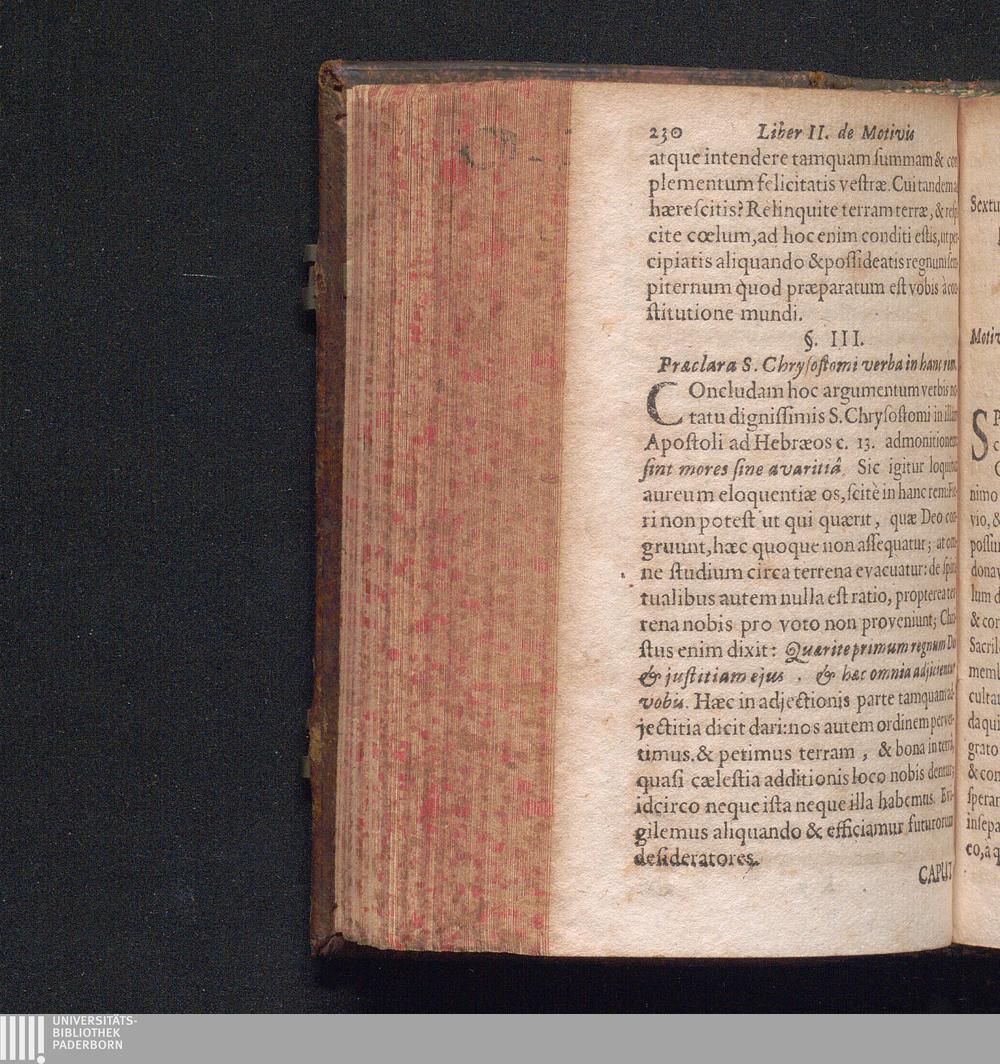 230 Liber II. de Motivis
atque intendere tamquam ſummam & con
plementum felicitatis veſtræ. Cui tandem a
hæreſcitis? Relinquite terram terræ, & reſp
cite cœlum, ad hoc enim conditi eſtis, ut per
cipiatis aliquando & poſſideatis regnum ſem
piternum quod præparatum eſt vobis à con
ſtitutione mundi.
§. III.
Præclara S. Chryſoſtomi verba in hanc rem.
COncludam hoc argumentum verbis no
tatu digniſſimis S. Chryſoſtomi in illam
Apoſtoli ad Hebræos c. 13. admonitionem
ſint mores ſine avaritiâ. Sic igitur loquitur
aureum eloquentiæ os, ſcitè in hanc rem: Fie-
ri non poteſt ut qui quærit, quæ Deo con-
gruunt, hæc quoque non aſſequatur; at om-
ne ſtudium circa terrena evacuatur: de ſpiri
tualibus autem nulla eſt ratio, propterea ter
rena nobis pro voto non proveniunt; Chri
ſtus enim dixit: Quærite primum regnum Dei
& juſtitiam ejus, & hæc omnia adjicientur
vobis. Hæc in adjectionis parte tamquam ad-
jectitia dicit dari: nos autem ordinem perver-
timus. & petimus terram, & bona in terrâ,
quaſi cæleſtia additionis loco nobis dentur;
idcirco neque iſta neque illa habemus. Evi-
gilemus aliquando & efficiamur futurorum
deſideratores.
CAPUT
Sextu
Motiv
SP
c
nimo
vio, &
poſſu
donav
lum d
& cor
Sacril
memb
cultat
da qui
grato
& con
ſperan
inſepa
eo, à q
UNIVERSITÄTS-
BIBLIOTHEK
PADERBORN